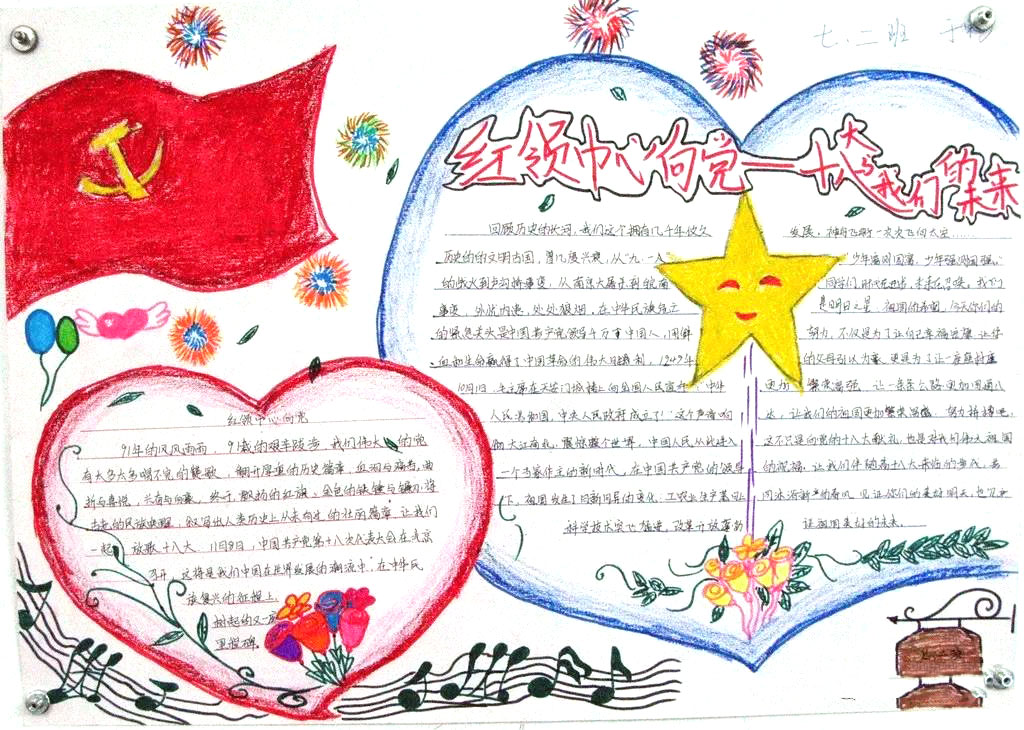 七、二班
红领巾心向党——十八大与我们的未来
回顾历史的长河，我们这个拥有几千年悠久
历史的文明古国，曾几度兴衰，从“九·一八”
的炮火到卢沟桥事变，从南京大屠杀到皖南
事变，外忧内患，处处狼烟，在中华民族危亡
的紧急关头是中国共产党领导千万万中国人，用鲜
血和生命赢得了中国革命的伟大胜利，1949年
10月1日，毛主席在天安门城楼上向全国人民宣布“中华
人民共和国，中央人民政府成立了”这个声音响
彻大江南北，震惊整个世界，中国人民从此进入
一个当家作主的新时代，在中国共产党的领导
下，祖国发生了日新月异的变化，工农业生产
科学技术突飞猛进，改革开放蓬勃
发展，神舟飞船一次次飞向太空……
“少年富则国富，少年强则国强。”
同学们
是明日之星，祖国的希望，今天你们的
努力，不仅是为了让自己幸福
的父母引以为豪，更是为了让一座座
更加繁荣富强，让一条条公路更加四通八
达，让我们的祖国更加繁荣富强，努力拼搏吧，
这不只是向党的十八大献礼，也是对我们伟大祖国
的祝福，让我们伴随着十八大
让祖国更加的未来。
红领巾心向党
91年的风风雨雨，91载的艰辛跋涉，我们伟大的党
有太多太多唱不完的赞歌，翻开厚重的历史篇章，血泪与痛苦，曲
折与喜悦，兴奋与向往，终于，鲜艳的红旗，金色的铁锤与镰刀，将
古老的民族唤醒，叙写出人类历史上从未有过的壮丽篇章，让我们
一起放歌十八大，11月8日，中国共产党第十八次代表大会在北京
召开，这将是我们中国在世界发展的潮流中，在中华民
族复兴的征程上，
树起的又一座
里程碑。
七、二班